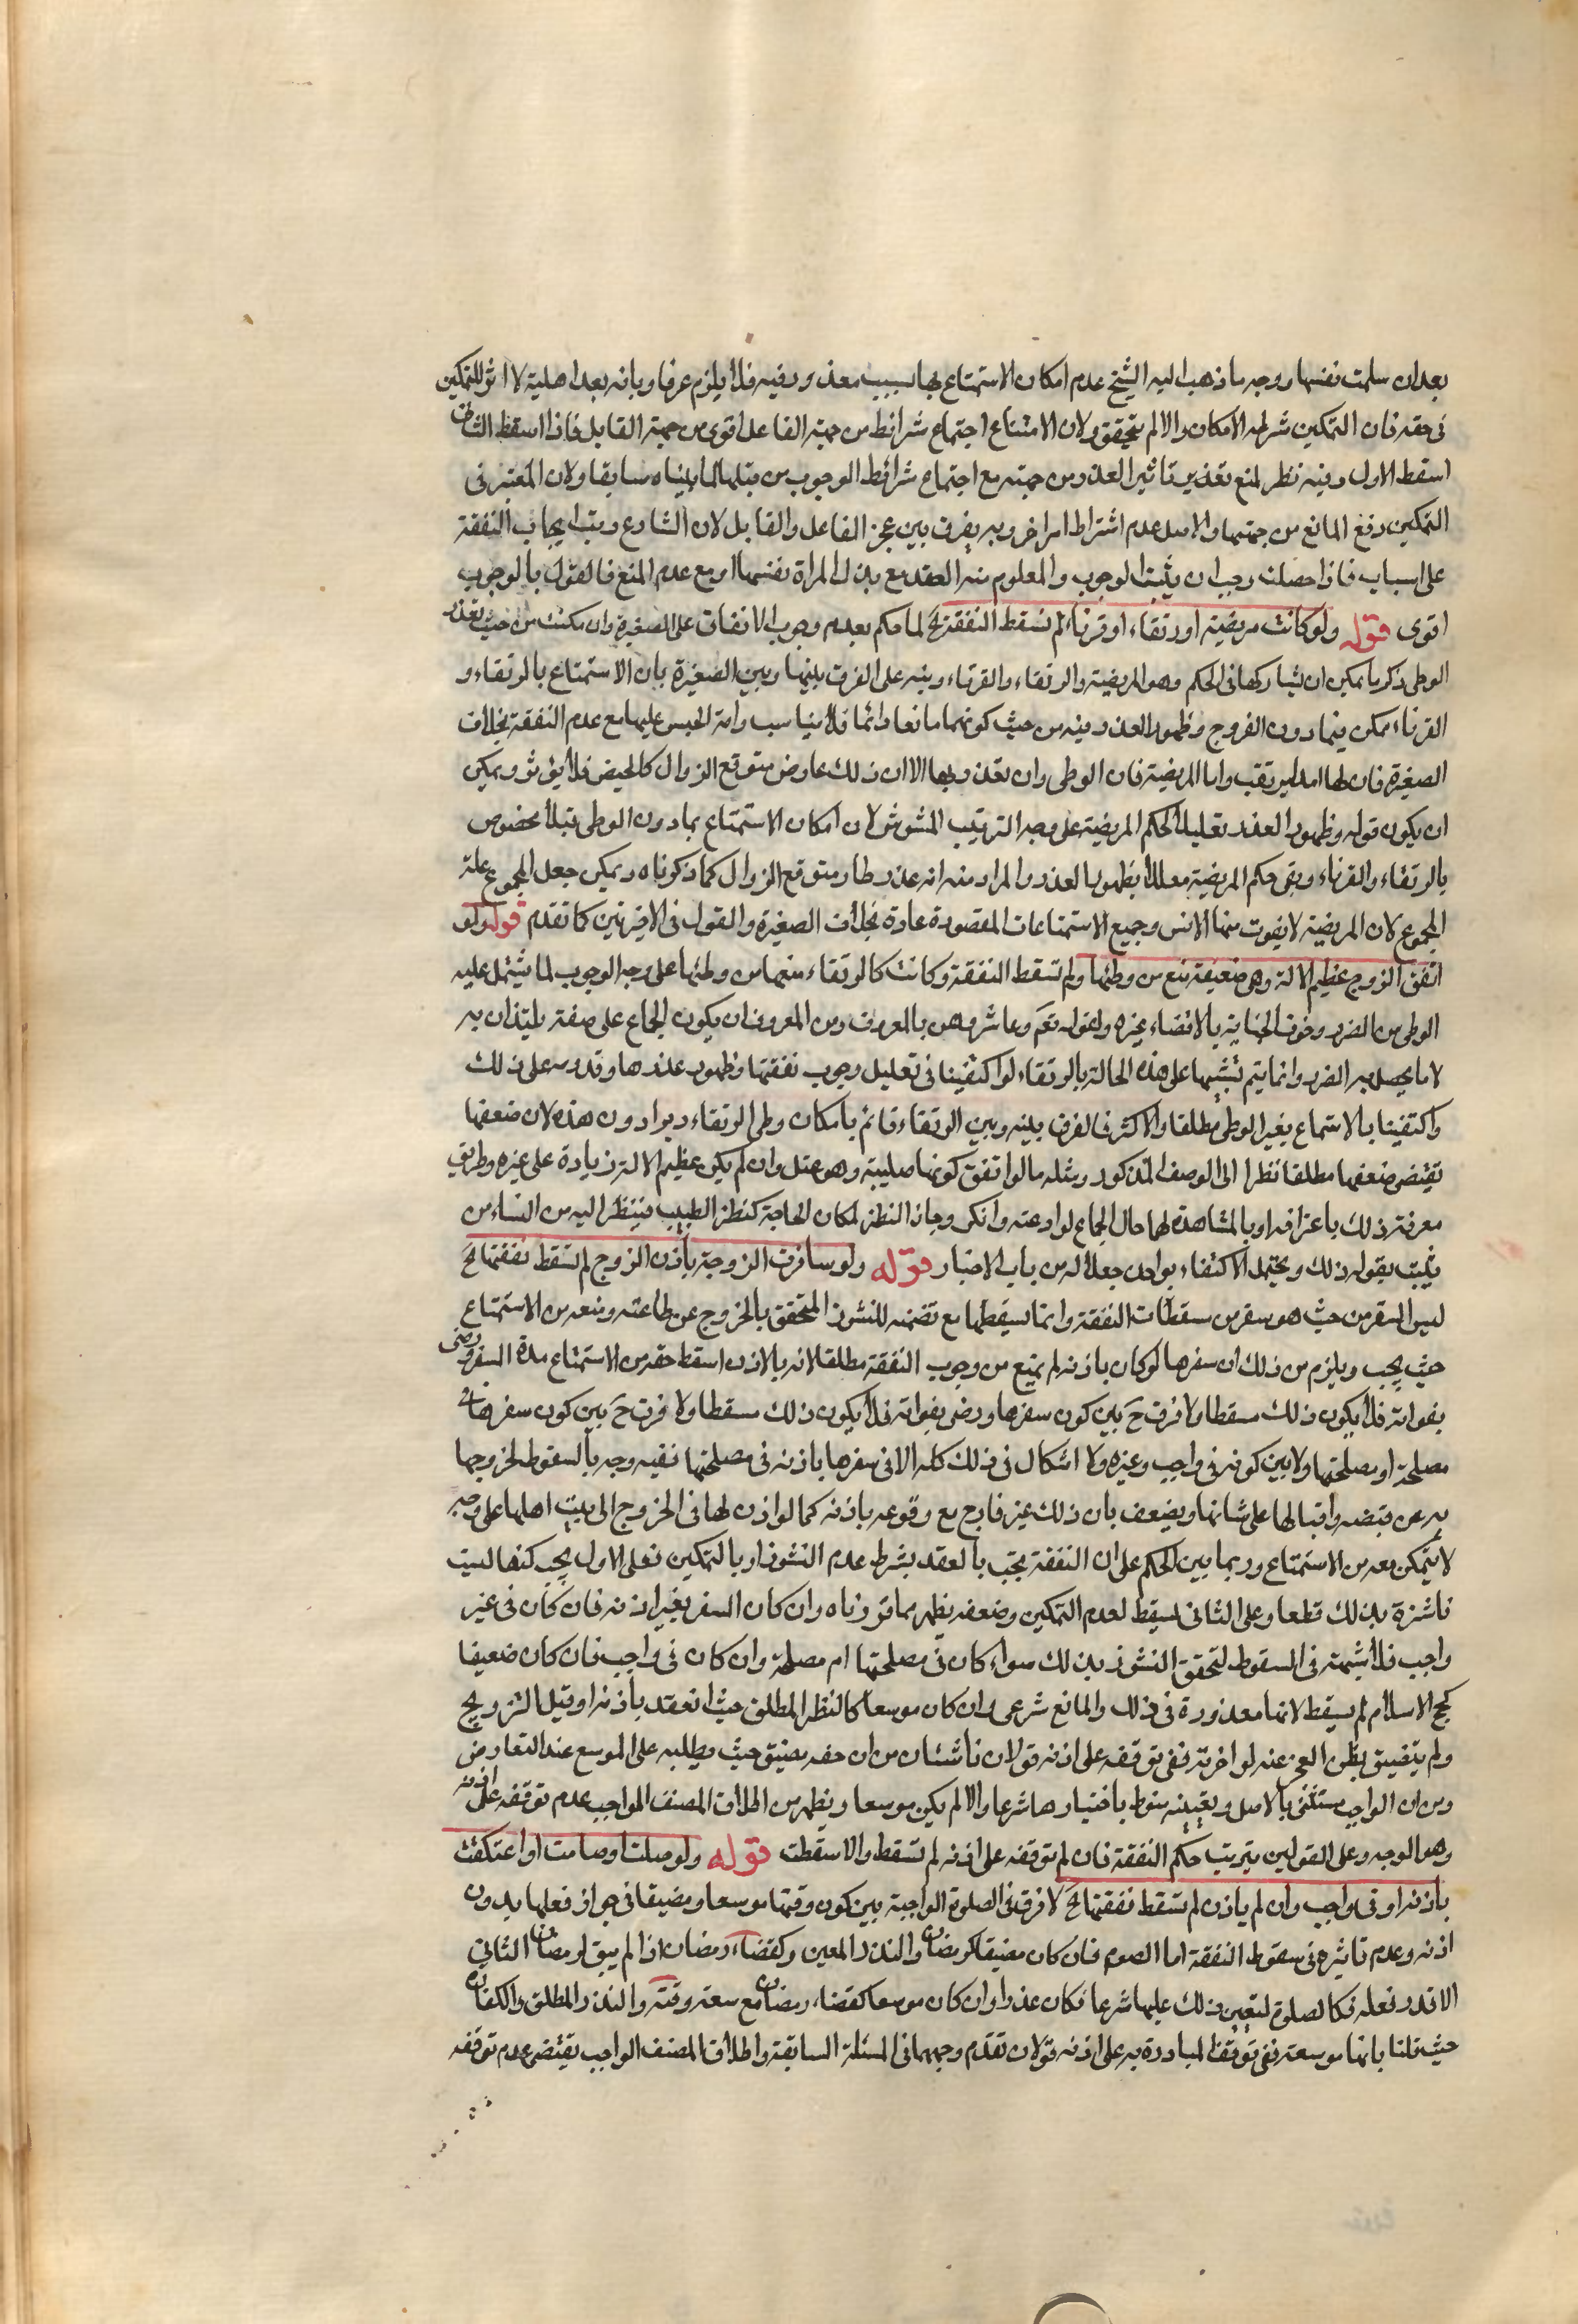 بعد ان سلمت نفسها ووجه ما ذهب اليه الشيخ عدم امكان الاستمتاع بها بسبب معذور فيه فلا يلزم عرفا وبانه بعد اهلية لا اثر للتمكين
فى حقه فان التمكين شرطه الامكان والا لم يتحقق ولان الامتناع اجتماع شرائط من جهة الفاعل اقوى من جهة القابل فاذا اسقط الثانى
اسقط الاول وفيه نظر لمنع تقدير تاثير العذر من جهته مع اجتماع شرائط الوجوب من قبلها لما بيناه سابقا ولان المعتبر فى
التمكين رفع المانع من جهتها والاصل عدم اشتراط امر اخر وبه يفرق بين عجز الفاعل والقابل لان الشارع رتب ايجاب النفقة
على اسباب فاذا حصلت وجب ان يثبت الوجوب والمعلوم منه العقد مع بذل المراة نفسها او مع عدم المنع فالقول بالوجوب
اقوى قوله ولو كانت مريضة او رتقاء او قرناء لم تسقط النفقة الخ لما حكم بعدم وجوب الانفاق على الصغيرة وان مكنت من حيث تعذر
الوطى ذكر ما يمكن ان يشاركها فى الحكم وهو المريضة والرتقاء والقرناء ونبه على الفرق بينها وبين الصغيرة بان الاستمتاع بالرتقاء و
القرناء ممكن فيما دون الفروج وظهور العذر فيه من حيث كونهما مانعا دائما فلا يناسب دامة الحبس عليها مع عدم النفقة بخلاف
الصغيرة فان لها امدا يرتقب واما المريضة فان الوطى وان تعذر بها الا ان ذلك عارض متوقع الزوال كالحيض فلا يؤثر ويمكن
ان يكون قوله وظهور العذر تعليلا لحكم المريضة على وجه الترتيب المشوش لان امكان الاستمتاع بما دون الوطى قبلا مخصوص
بالرتقاء والقرناء وبقى حكم المريضة معللا بظهور العذر والمراد منه انه عذر طار متوقع الزوال كما ذكرناه ويمكن جعل المجموع علة
المجموع لان المريضة لا يفوت منها الانس وجميع الاستمتاعات المقصودة عادة بخلاف الصغيرة والقول فى الاخيرتين كما تقدم قوله ولو
اتفق الزوج عظيم الالة وهى ضعيفة منع من وطئها ولم تسقط النفقة وكانت كالرتقاء منعها من وطئها على وجه الوجوب لما يشتمل عليه
الوطى من الضرر وخوف الجناية بالافضاء وغيره ولقوله تعم وعاشروهن بالمعروف ومن المعروف ان يكون الجماع على صفة يلتذان به
لا ما يحصل به الضرر وانما يتم تشبيها على هذه الحالة بالرتقاء لو اكتفينا فى تعليل وجوب نفقتها وظهور عذرها وقدرته على ذلك
واكتفينا بالاستمتاع بغير الوطى مطلقا والاكثر فالفرق بينه وبين الرتقاء قائم بامكان وطى الرتقاء دبرا دون هذه لان ضعفها
يقتضى ضعفها مطلقا نظرا الى الوصف المذكور ومثله ما لو اتفق كونها صليبة وهو عبل وان لم يكن عظيم الالة زيادة على غيره وطريق
معرفة ذلك باعترافه او بالمشاهدة لهما حال الجماع لو ادعته وانكر وجاز النظر لمكان الحاجة كنظر الطبيب فينظر اليه من النساء من
يثبت بقوله ذلك ويحتمل الاكتفاء بواحدة جعلا له من باب الاخبار قوله ولو سافرت الزوجة باذن الزوج لم تسقط نفقتها الخ
ليس السفر من حيث هو سفر من مسقطات النفقة وانما يسقطها مع تضمنه للنشوز المتحقق بالخروج عن طاعته ومنعه من الاستمتاع
حيث يجب ويلزم من ذلك ان سفرها لو كان باذنه لم يمنع من وجوب النفقة مطلقا لانه بالاذن اسقط حقه من الاستمتاع مدة السفر ورضى
بفواته فلا يكون ذلك مسقطا ولا فرق ح بين كون سفرها ورضى بفواته فلا يكون ذلك مسقطا ولا فرق ح بين كون سفرها فى
مصلحته او مصلحتها ولا بين كونه فى واجب وغيره ولا اشكال فى ذلك كله الا فى سفرها باذنه فى مصلحتها ففيه وجه بالسقوط لخروجها
به عن قبضه واقبالها على شانها ويضعف بان ذلك غير قادح مع وقوعه باذنه كما لو اذن لها فى الخروج الى بيت اهلها على وجه
لا يتمكن معه من الاستمتاع وربما بين الحكم على ان النفقة تجب بالعقد بشرط عدم النشوز او بالتمكين فعلى الاول يجب كنفا ليست
ناشزة بذلك قطعا وعلى الثانى يسقط لعدم التمكين وضعفه يظهر مما قررناه وان كان السفر بغير اذنه فان كان فى غير
واجب فلا شبهة فى السقوط لتحقق النشوز بذلك سواء كان فى مصلحتها ام مصلحته وان كان فى واجب فان كان ضعيفا
كحج الاسلام لم يسقط لانها معذورة فى ذلك والمانع شرعى وان كان موسعا كالنظر المطلق حيث انعقد باذنه او قبل التزويج
ولم يتضيق بظن العجز عنه لو اخرته ففى توقفه على اذنه قولان ناشئان من ان حقه مضيق حيث يطلبه على الموسع عند التعارض
ومن ان الواجب مستثنى بالاصل وتعيينه منوط باختيارها شرعا والا لم يكن موسعا ويظهر من اطلاق المصنف الواجب عدم توقفه على اذنه
وهو الوجه وعلى القولين يترتب حكم النفقة فان لم توقفه على اذنه لم تسقط والا سقطت قوله ولو صلت او صامت او اعتكفت
باذنه او فى واجب وان لم ياذن لم تسقط نفقتها الخ لا فرق فى الصلوة الواجبة بين كون وقتها موسعا ومضيقا فى جواز فعلها بدون
اذنه وعدم تاثيره فى سقوط النفقة اما الصوم فان كان مضيقا كرمضان والنذر المعين وكقضاء رمضان اذا لم يبق لرمضان الثانى
الا قدر فعله فكالصلوة لتعين ذلك عليها شرعا فكان عذرا وان كان موسعا كقضاء رمضان مع سعة وقته والنذر المطلق والكفارة
حيث قلنا بانها موسعة ففى توقف المبادرة به على اذنه قولان تقدم وجههما فى المسئلة السابقة واطلاق المصنف الواجب يقتضى عدم توقفه